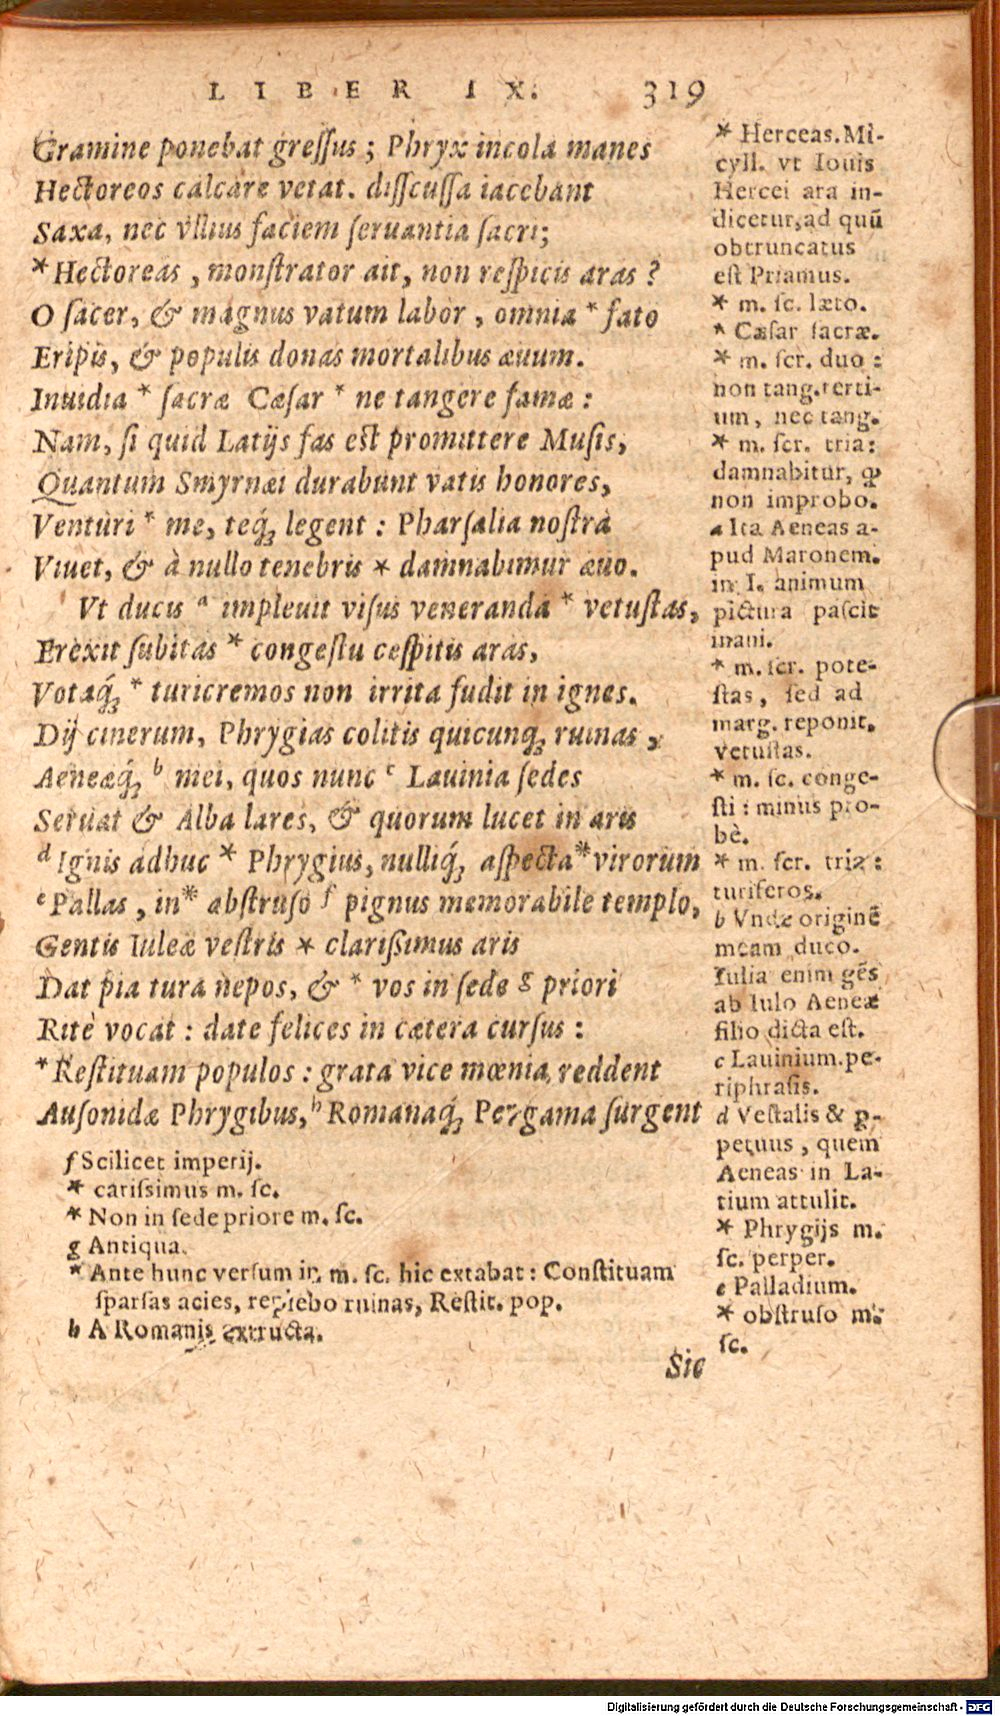 LIBER IX. 319
Gramine ponebat greſſus ; Phryx incola manes
Hectoreos calcare vetat. diſſcuſſa iacebant
Saxa, nec vllius faciem ſeruantia ſacri;
*Hectoreas , monſtrator ait, non reſpicis aras ?
O ſacer, & magnus vatum labor , omnia * fato
Eripis, & populis donas mortalibus æuum.
Inuidia * ſacræ Cæſar * ne tangere famæ :
Nam, ſi quid Latijs fas eſt promittere Muſis,
Quantum Smyrnæi durabunt vatis honores,
Venturi * me, teq́ꝫ legent : Pharſalia noſtra
Viuet, & à nullo tenebris * damnabimur æuo.
Vt ducis a impleuit viſus veneranda * vetuſtas,
Erexit ſubitas * congeſtu ceſpitis aras,
Votaq́ꝫ * turicremos non irrita fudit in ignes.
Dij cinerum, Phrygias colitis quicunqꝫ ruinas ,
Aeneæq́ꝫ b mei, quos nunc c Lauinia ſedes
Seruat & Alba lares, & quorum lucet in aris
d Ignis adhuc * Phrygius, nulliq́ꝫ aſpecta * virorum
e Pallas , in * abſtruſo f pignus memorabile templo,
Gentis Iuleæ veſtris * clariſſimus aris
Dat pia tura nepos, & * vos in ſede g priori
Rite vocat : date felices in cætera curſus :
*Reſtituam populos : grata vice mœnia reddent
Auſonidæ Phrygibus, h Romanaq́ꝫ Pergama ſurgent
* Herceas. Mi-
cyll. vt Iouis
Hercei ara in-
dicetur, ad quū
obtruncatus
eſt Priamus.
* m. ſc. læto.
* Cæſar ſacræ.
* m. ſcr. duo :
non tang. terti-
um , nec tang.
* m. ſcr. tria:
damnabitur, ꝙ
non improbo.
a Ita Aeneas a-
pud Maronem.
in I. animum
pictura paſcit
inani.
* m. ſcr. pote-
ſtas , ſed ad
marg. reponit.
vetuſtas.
* m. ſc. conge-
ſti : minus pro-
bè.
* m. ſcr. tria :
turiferos.
b Vnde originē
meam duco.
Iulia enim gēs
ab Iulo Aeneæ
filio dicta eſt.
c Lauinium. pe-
riphraſis.
d Veſtalis & ꝑ-
petuus , quem
Aeneas in La-
tium attulit.
* Phrygijs m.
ſc. perper.
e Palladium.
* obſtruſo m.
ſc.
f Scilicet imperij.
* cariſsimus m. ſc.
* Non in ſede priore m. ſc.
g Antiqua.
* Ante hunc verſum in m. ſc. hic extabat : Conſtituam
ſparſas acies, replebo ruinas, Reſtit. pop.
h A Romanis extructa.
Sic
Digitalisierung gefördert durch die Deutsche Forschungsgemeinschaft - DFG